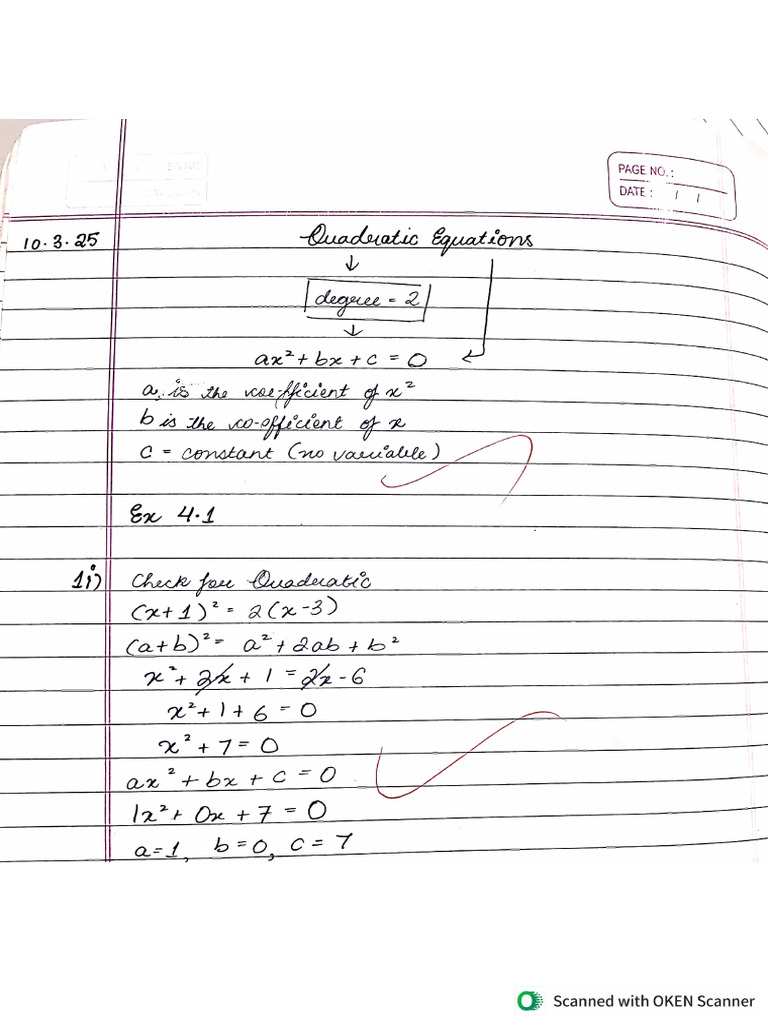 PAGE NO.:
DATE: / /
10.3.25 Quadratic Equations
↓
degree = 2
↓
ax² + bx + c = 0
a is the coefficient of x²
b is the co-efficient of x
c = constant (no variable)
Ex 4.1
1i) Check for Quadratic
(x+1)² = 2(x-3)
(a+b)² = a² + 2ab + b²
x² + 2x + 1 = 2x - 6
x² + 1 + 6 = 0
x² + 7 = 0
ax² + bx + c = 0
1x² + 0x + 7 = 0
a=1, b=0, c=7
Scanned with OKEN Scanner